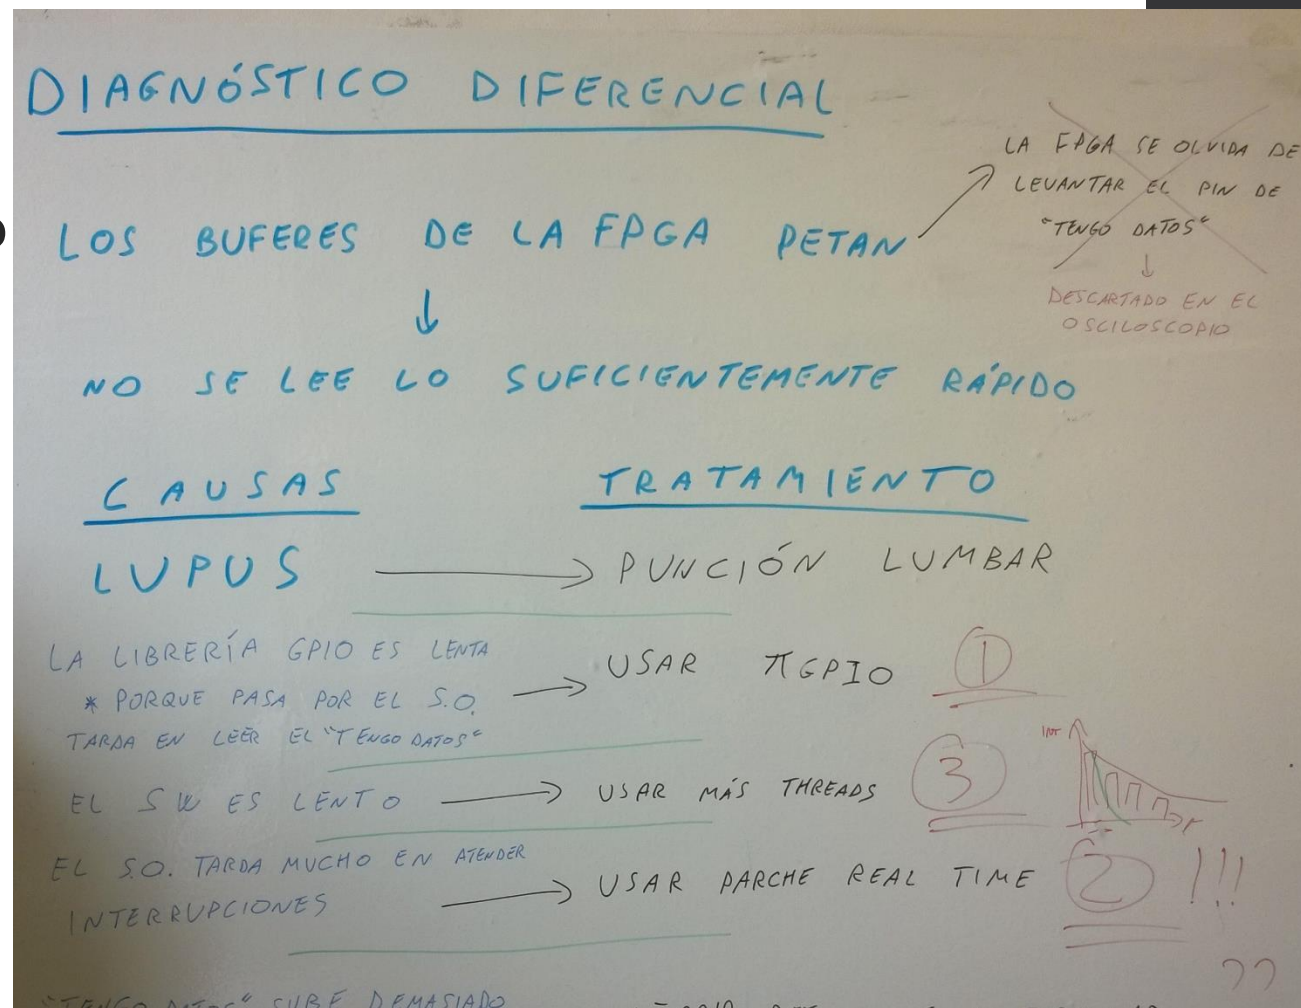 DIAGNÓSTICO DIFERENCIAL
LA FPGA SE OLVIDA DE
LEVANTAR EL PIN DE
"TENGO DATOS"
↓
DESCARTADO EN EL
OSCILOSCOPIO
LOS BUFERES DE LA FPGA PETAN
↓
NO SE LEE LO SUFICIENTEMENTE RÁPIDO
CAUSAS TRATAMIENTO
LUPUS → PUNCIÓN LUMBAR
LA LIBRERÍA GPIO ES LENTA
* PORQUE PASA POR EL S.O. → USAR πGPIO 1
TARDA EN LEER EL "TENGO DATOS"
EL SW ES LENTO → USAR MÁS THREADS 3
EL S.O. TARDA MUCHO EN ATENDER
INTERRUPCIONES → USAR PARCHE REAL TIME 2 !!!
??
"TENGO DATOS" SUBE DEMASIADO